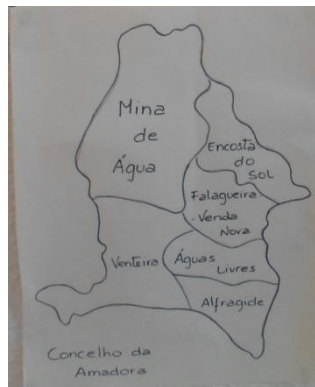 Mina
de
Água
Encosta
do
SOL
Falagueira
-Venda
Nova
Venteira
Águas
Livres
Alfragide
Concelho da
Amadora